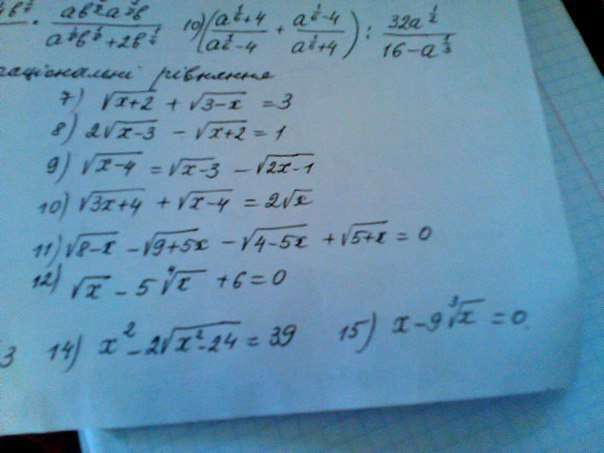 ab^{\frac{1}{2}} a^{\frac{1}{2}}b / a^{\frac{1}{2}}b^{\frac{1}{2}} + 2b^{\frac{1}{2}} 10) (a^{\frac{1}{2}}+4 / a^{\frac{1}{2}}-4 + a^{\frac{1}{2}}-4 / a^{\frac{1}{2}}+4) : 32a^{\frac{1}{2}} / 16-a^{\frac{1}{3}}
раціональні рівняння
7) √(x+2) + √(3-x) = 3
8) 2√(x-3) - √(x+2) = 1
9) √(x-4) = √(x-3) - √(2x-1)
10) √(3x+4) + √(x-4) = 2√x
11) √(8-x) - √(9+5x) - √(4-5x) + √(5+x) = 0
12) √x - 5 ⁴√x + 6 = 0
3 14) x² - 2√(x²-24) = 39 15) x - 9 ³√x = 0